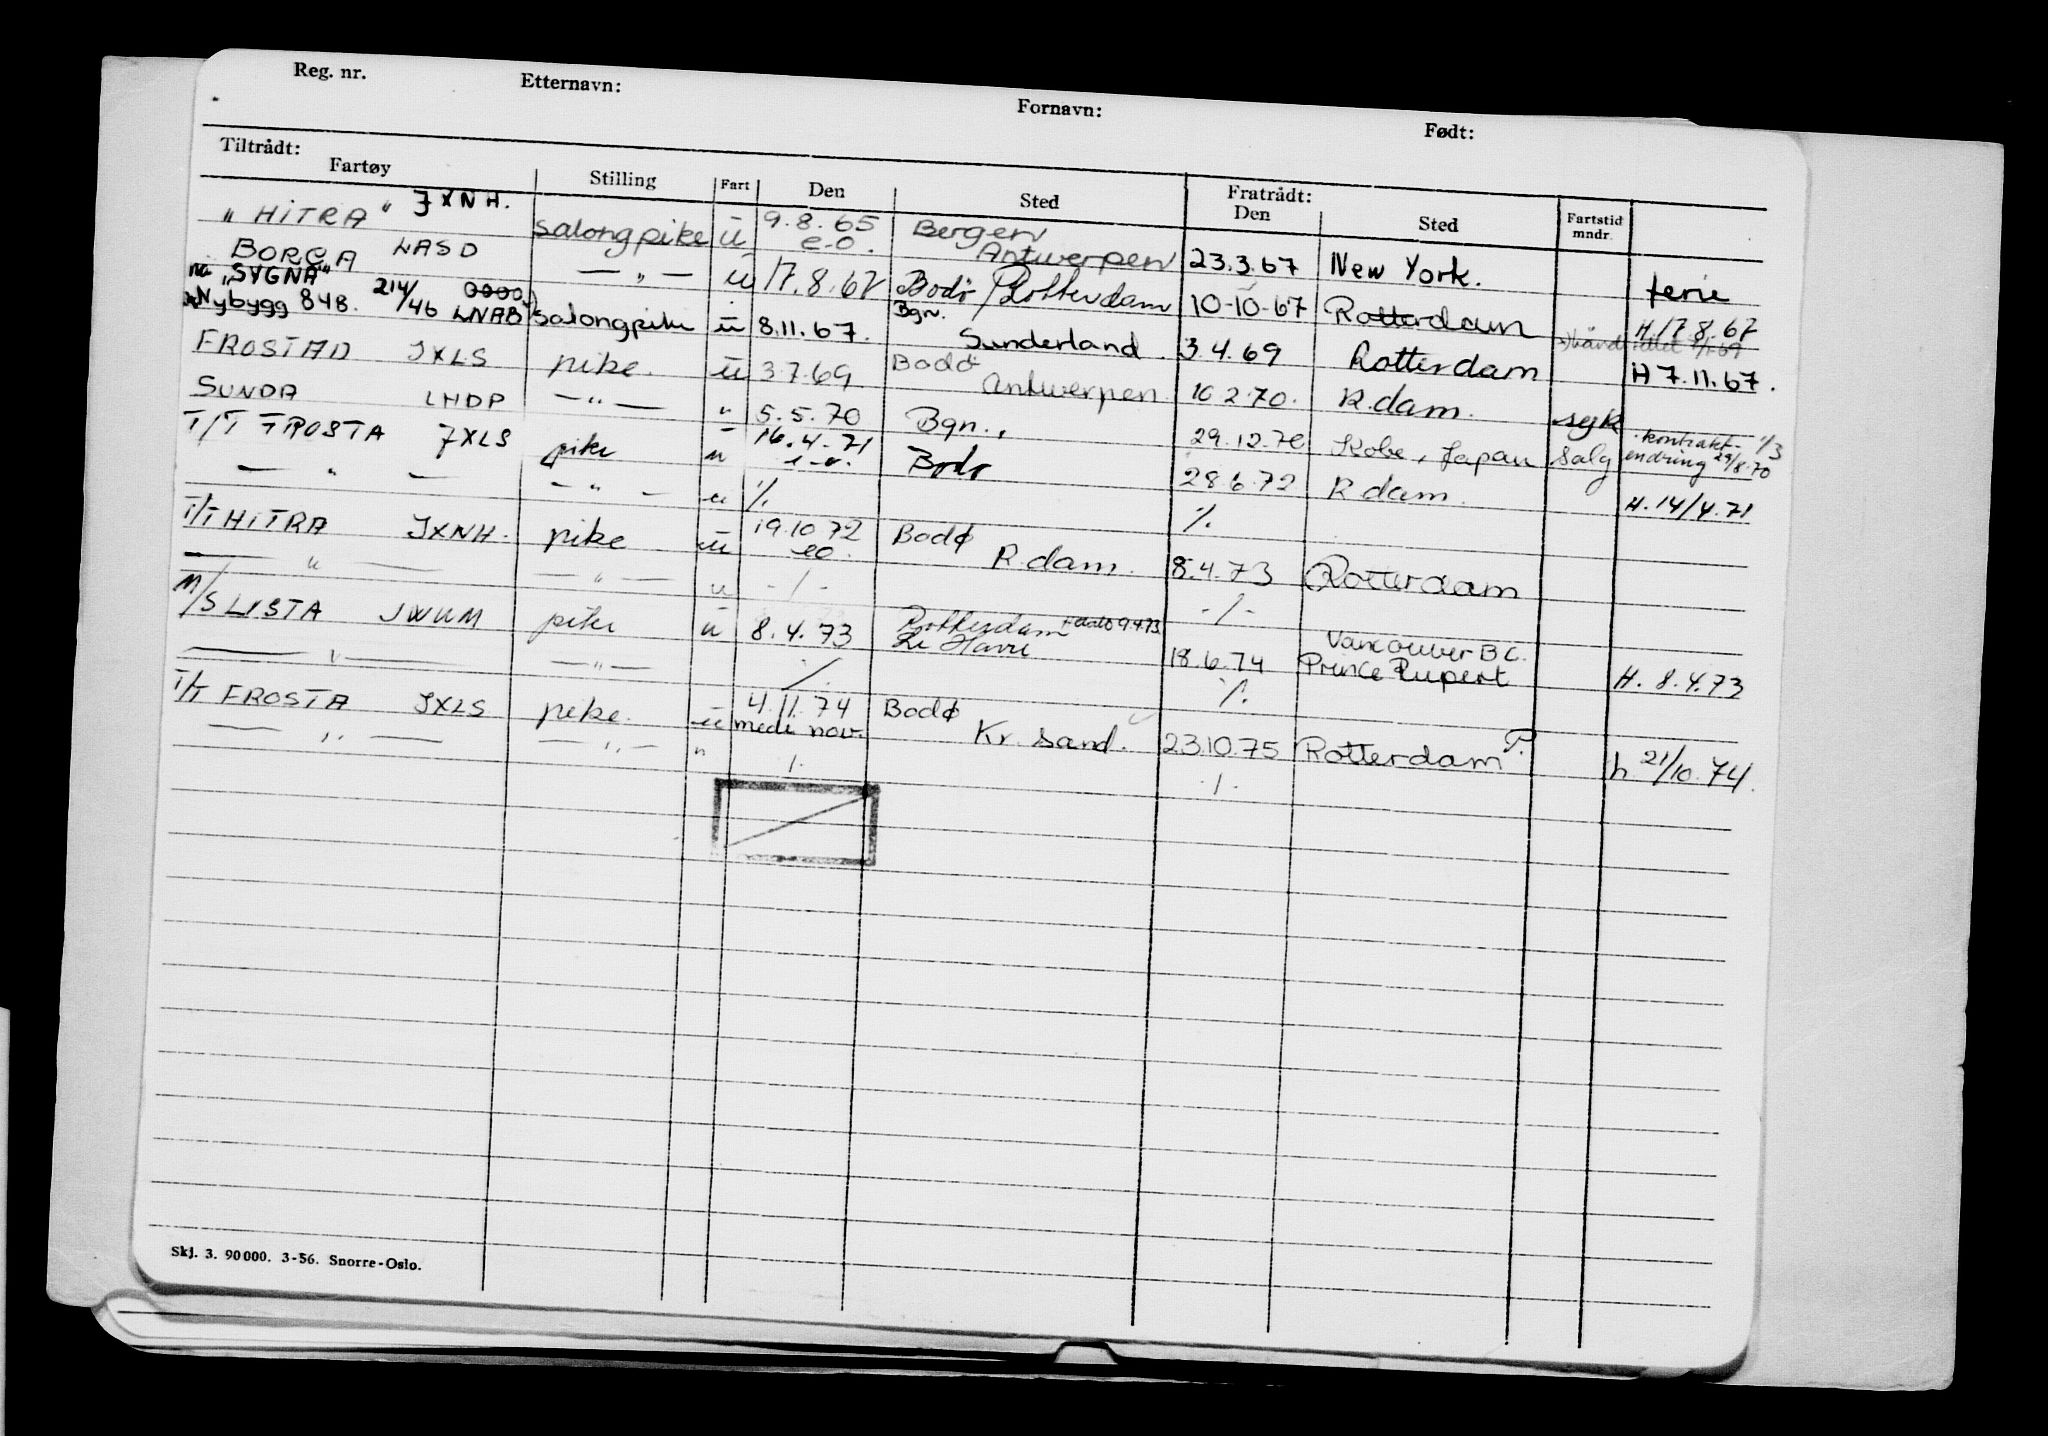 Reg. nr. Etternavn: Fornavn: Født:
Tiltrådt: Fratrådt:
Fartøy Stilling Fart Den Sted Den Sted Fartstid mndr.
"HITRA" JXNH. salongpike u 9.8.65 e-o. Bergen Antwerpen 23.3.67 New York. ferie
BORGA LASD — " — u 17.8.67 Bodø / Rotterdam 10-10-67 Rotterdam H. 17.8.67
nå "SYGNA"
Nybygg 848. 214/46 LNAB salongpike u 8.11.67. Bgn. Sunderland. 3.4.69 Rotterdam H 7.11.67.
FROSTAD JXLS pike. u 3.7.69 Bodø Antwerpen 16.2.70. R.dam.
SUNDA LHDP — " — " 5.5.70 Bgn., 29.12.70 Kobe, Japan syk salg kontrakt- 1/3 endring 29/8.70
T/T FROSTA JXLS pike u 16.4.71 e-o. Bodø 28.6.72 R dam. H. 14/4.71
— " — — " — u ./. ./.
T/T HITRA JXNH. pike u 19.10.72 eo. Bodø R.dam. 8.4.73 Rotterdam
— " — — " — u -/- -/-
M/S LISTA JWUM pike u 8.4.73 Rotterdam 9.4.73 Le Havre 18.6.74 Vancouver B.C. Prince Rupert H. 8.4.73
— " — — " — ./. ./.
T/T FROSTA JXLS pike. u 4.11.74 medi nov. Bodø Kr. sand. 23.10.75 Rotterdam P. h. 21/10.74.
— " — — " — " ./. ./.
Skj. 3. 90 000. 3-56. Snorre-Oslo.